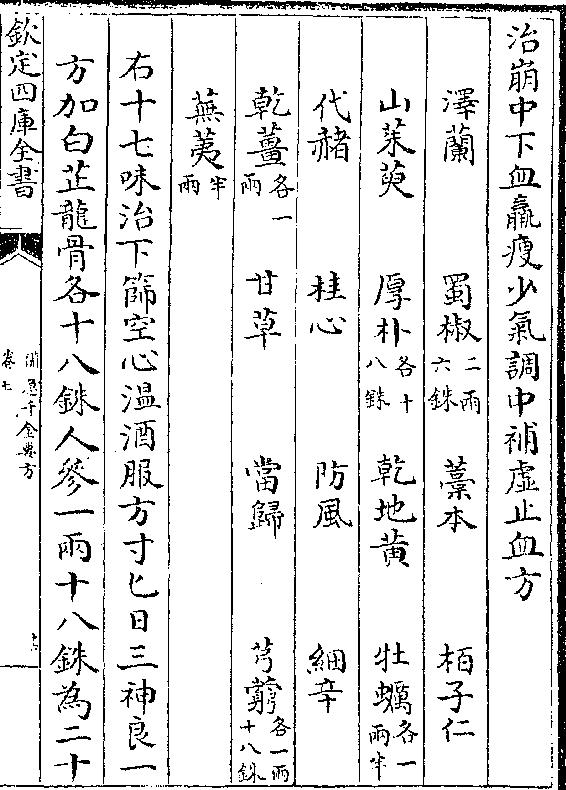 治崩中下血羸瘦少氣調中補虛止血方
澤蘭 蜀椒二兩六銖 藁本 栢子仁
山茱萸 厚朴各十八銖 乾地黄 牡蠣各一兩半
代赭 桂心 防風 細辛
乾薑各一兩 甘草 當歸 芎藭各一兩十八銖
蕪荑半兩
右十七味治下篩空心溫酒服方寸匕日三神良一
方加白芷龍骨各十八銖人參一兩十八銖為二十
欽定四庫全書
備急千金要方
卷七